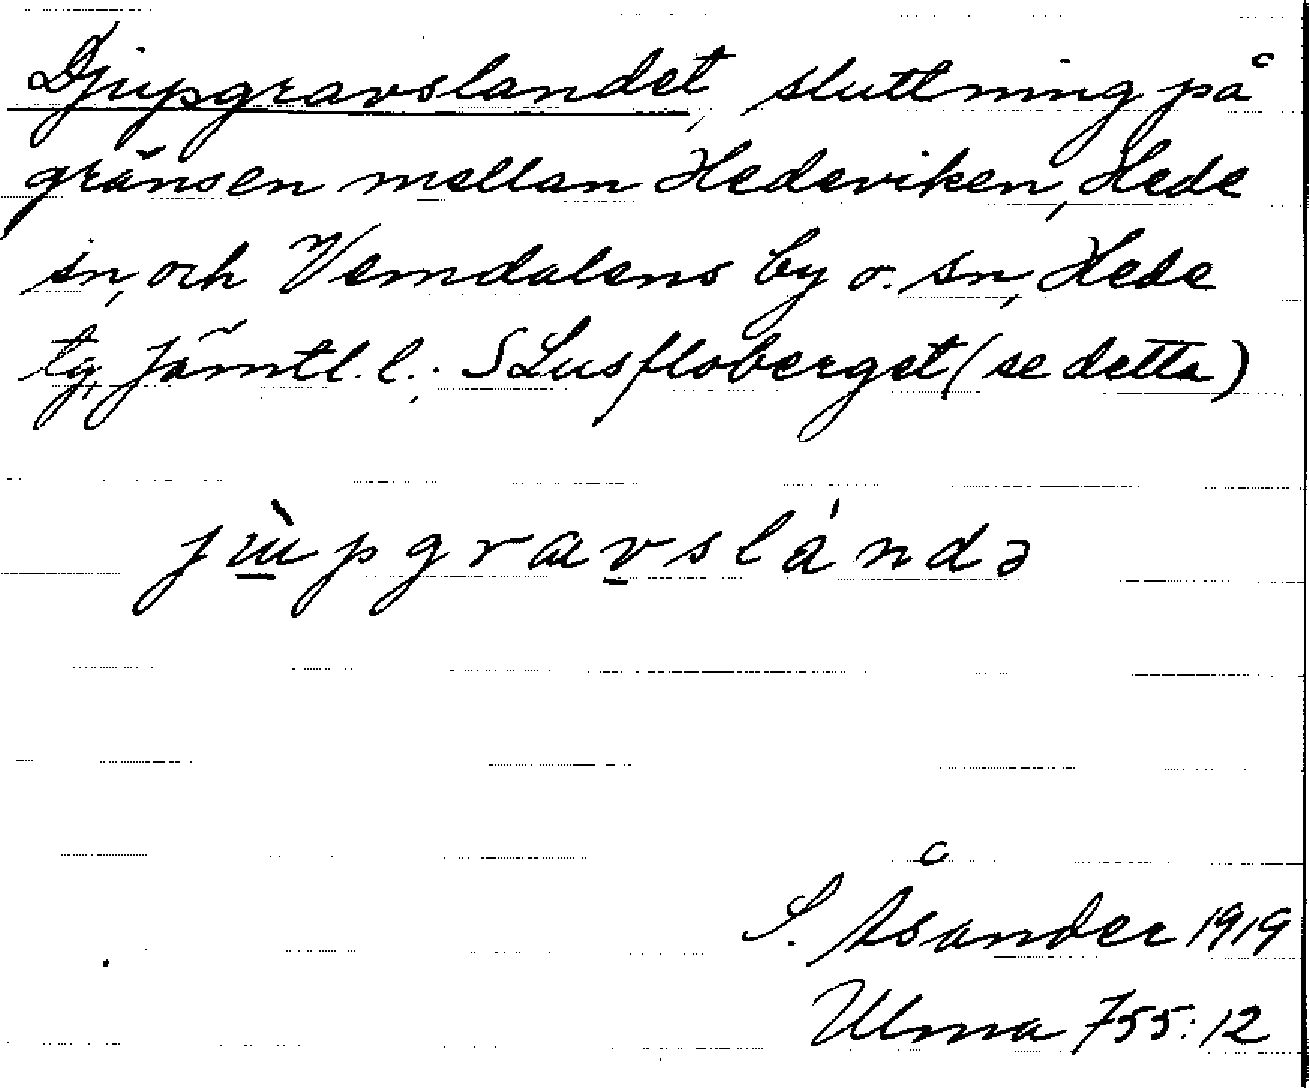 Djupgravslandet, sluttning på
gränsen mellan Hedeviken, Hede
sn, och Vemdalens by o. sn, Hede
tg, Jämtl. l.: S Lusfloberget (se detta)
jùpgravslándə
S. Åsander 1919
Ulma 755:12